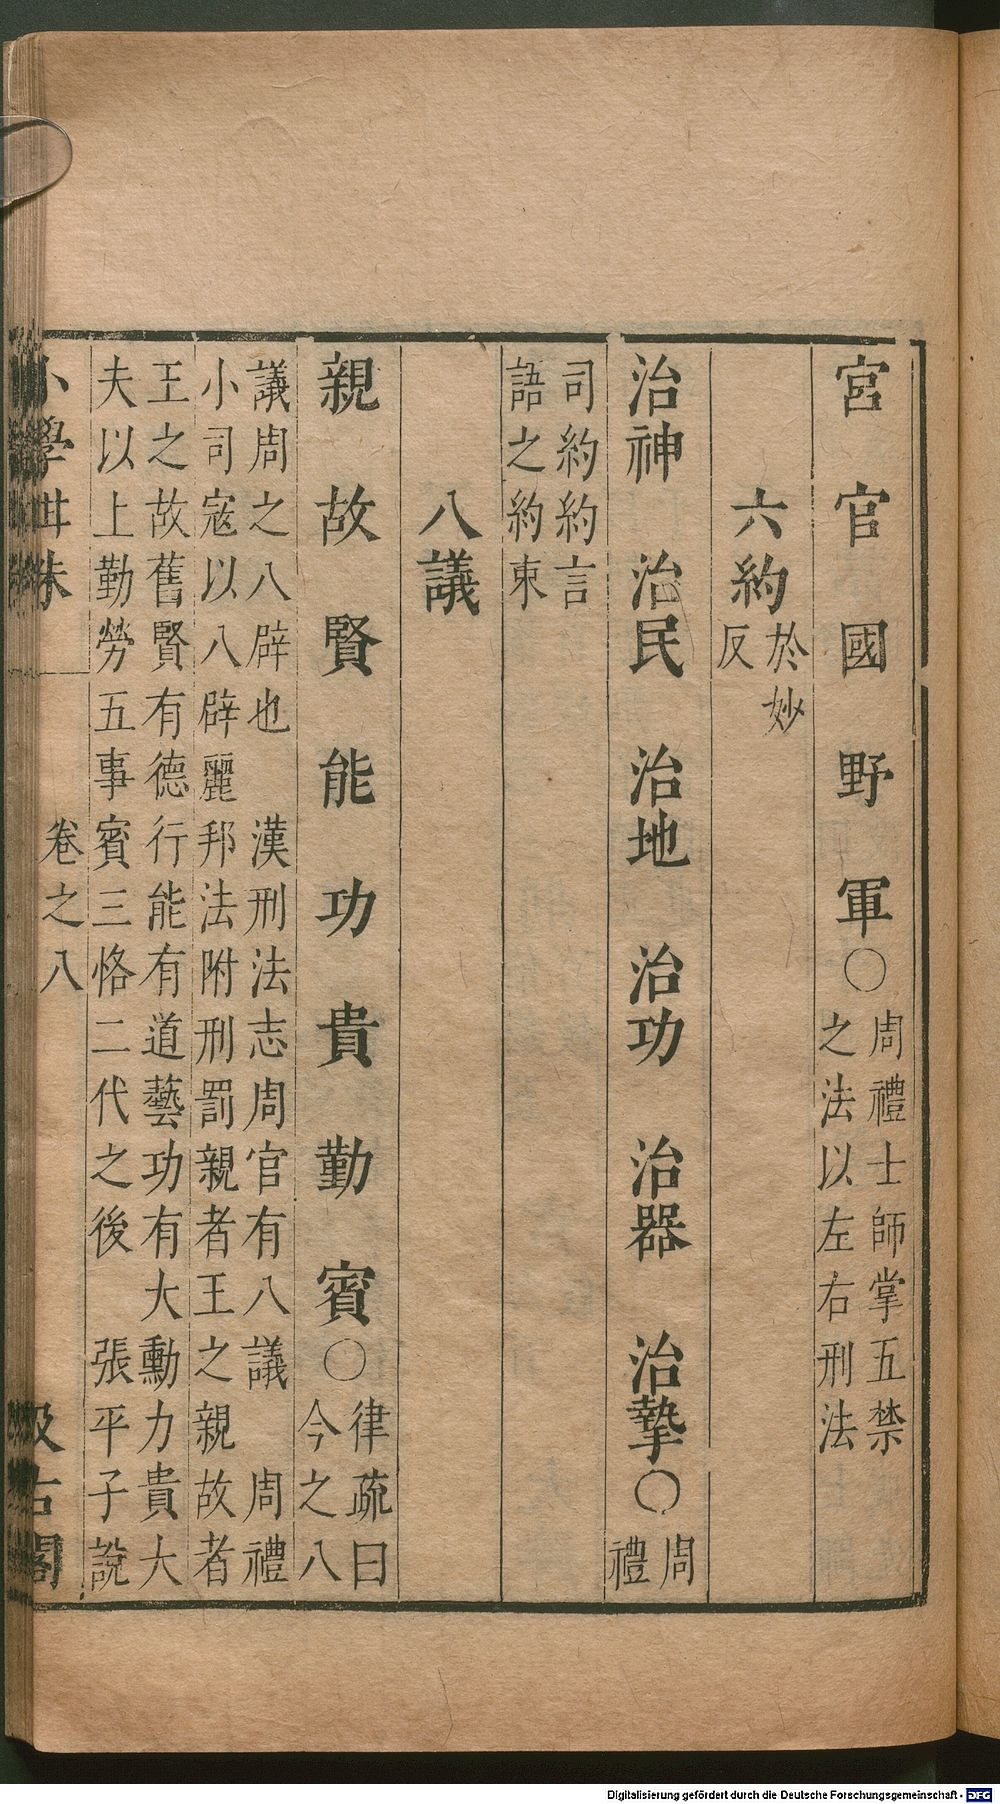 宮　官　國　野　軍〇周禮士師掌五禁
之法以左右刑法
六約於妙
反
治神　治民　治地　治功　治器　治摯〇周
禮
司約約言
語之約束
八議
親　故　賢　能　功　貴　勤　賓〇律疏曰
今之八
議周之八辟也　漢刑法志周官有八議　周禮
小司寇以八辟麗邦法附刑罰親者王之親故者
王之故舊賢有德行能有道藝功有大勳力貴大
夫以上勤勞五事賓三恪二代之後　張平子說
小學紺珠　卷之八　汲古閣
Digitalisierung gefördert durch die Deutsche Forschungsgemeinschaft - DFG